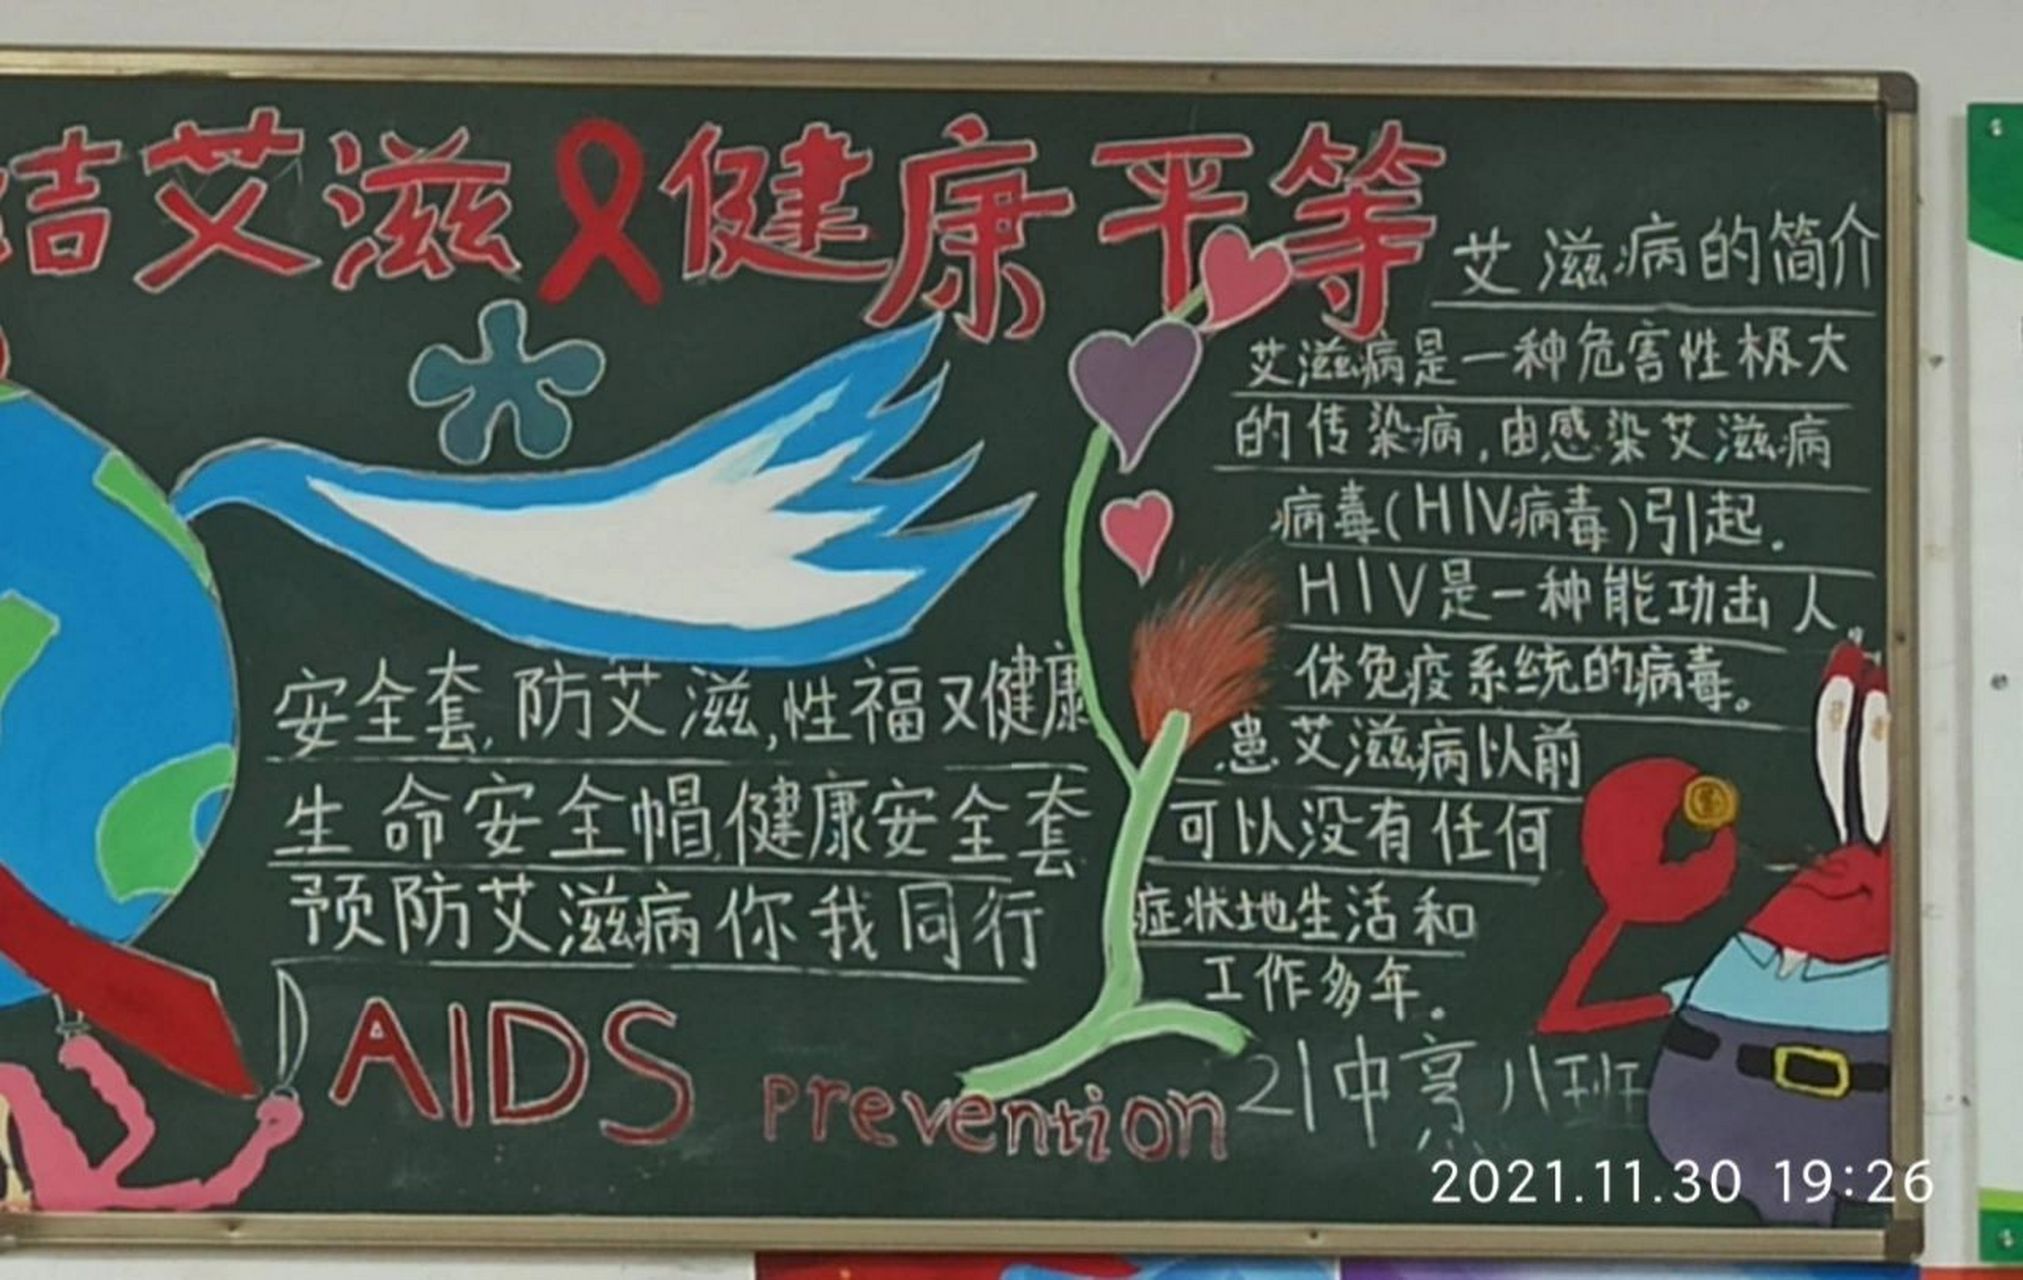 结艾滋 健康平等
艾滋病的简介
艾滋病是一种危害性极大
的传染病,由感染艾滋病
病毒(HIV病毒)引起.
HIV是一种能功击人
体免疫系统的病毒。
患艾滋病以前
可以没有任何
症状地生活和
工作多年。
安全套,防艾滋,性福又健康
生命安全帽,健康安全套
预防艾滋病你我同行
AIDS prevention
21中烹八班
2021.11.30 19:26